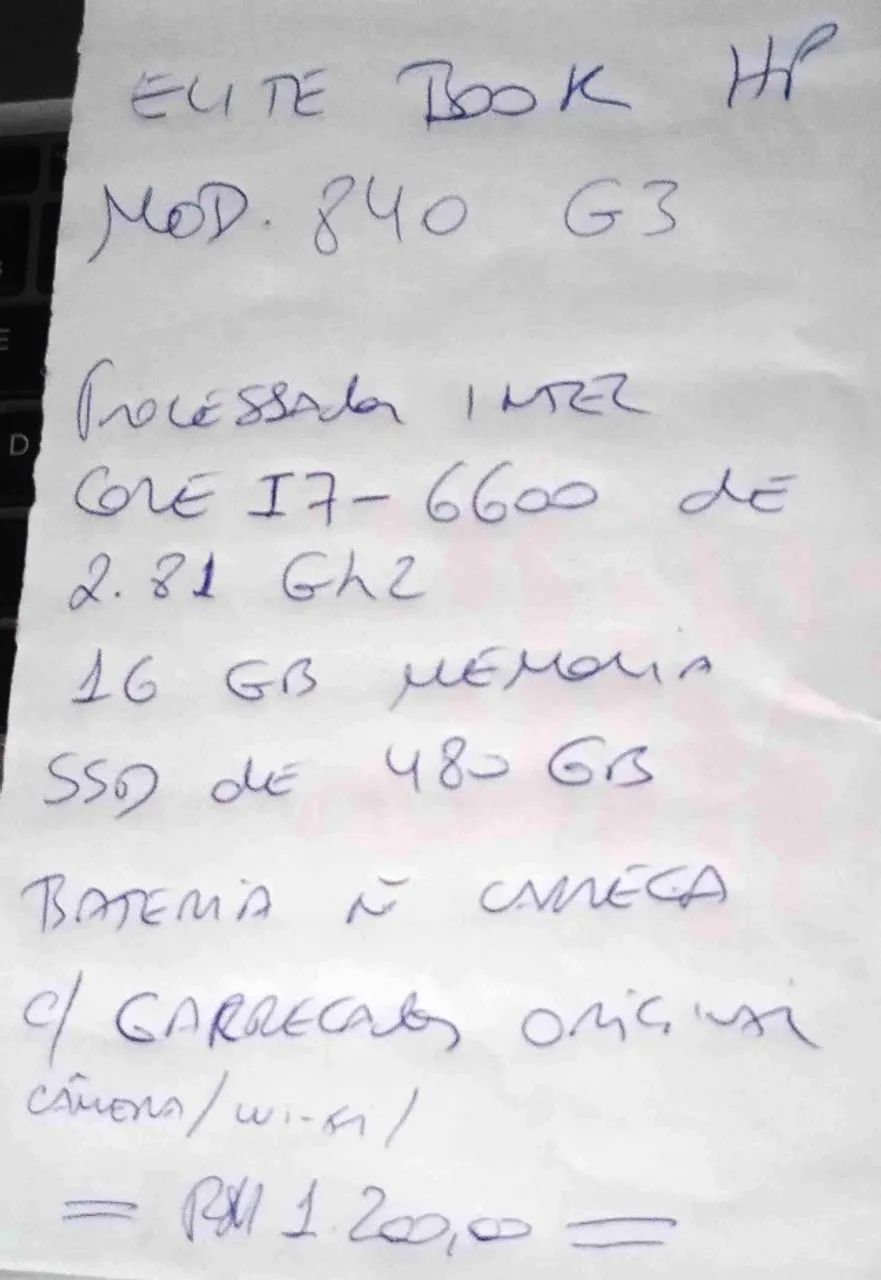 ELITE BOOK HP
MOD. 840 G3
PROCESSADOR INTEL
CORE I7-6600 DE
2.81 GhZ
16 GB MEMORIA
SSD DE 480 GB
BATERIA Ñ CARREGA
C/ CARREGADOR ORIGINAL
CÂMERA/WI-FI/
= R$ 1.200,00 =
D